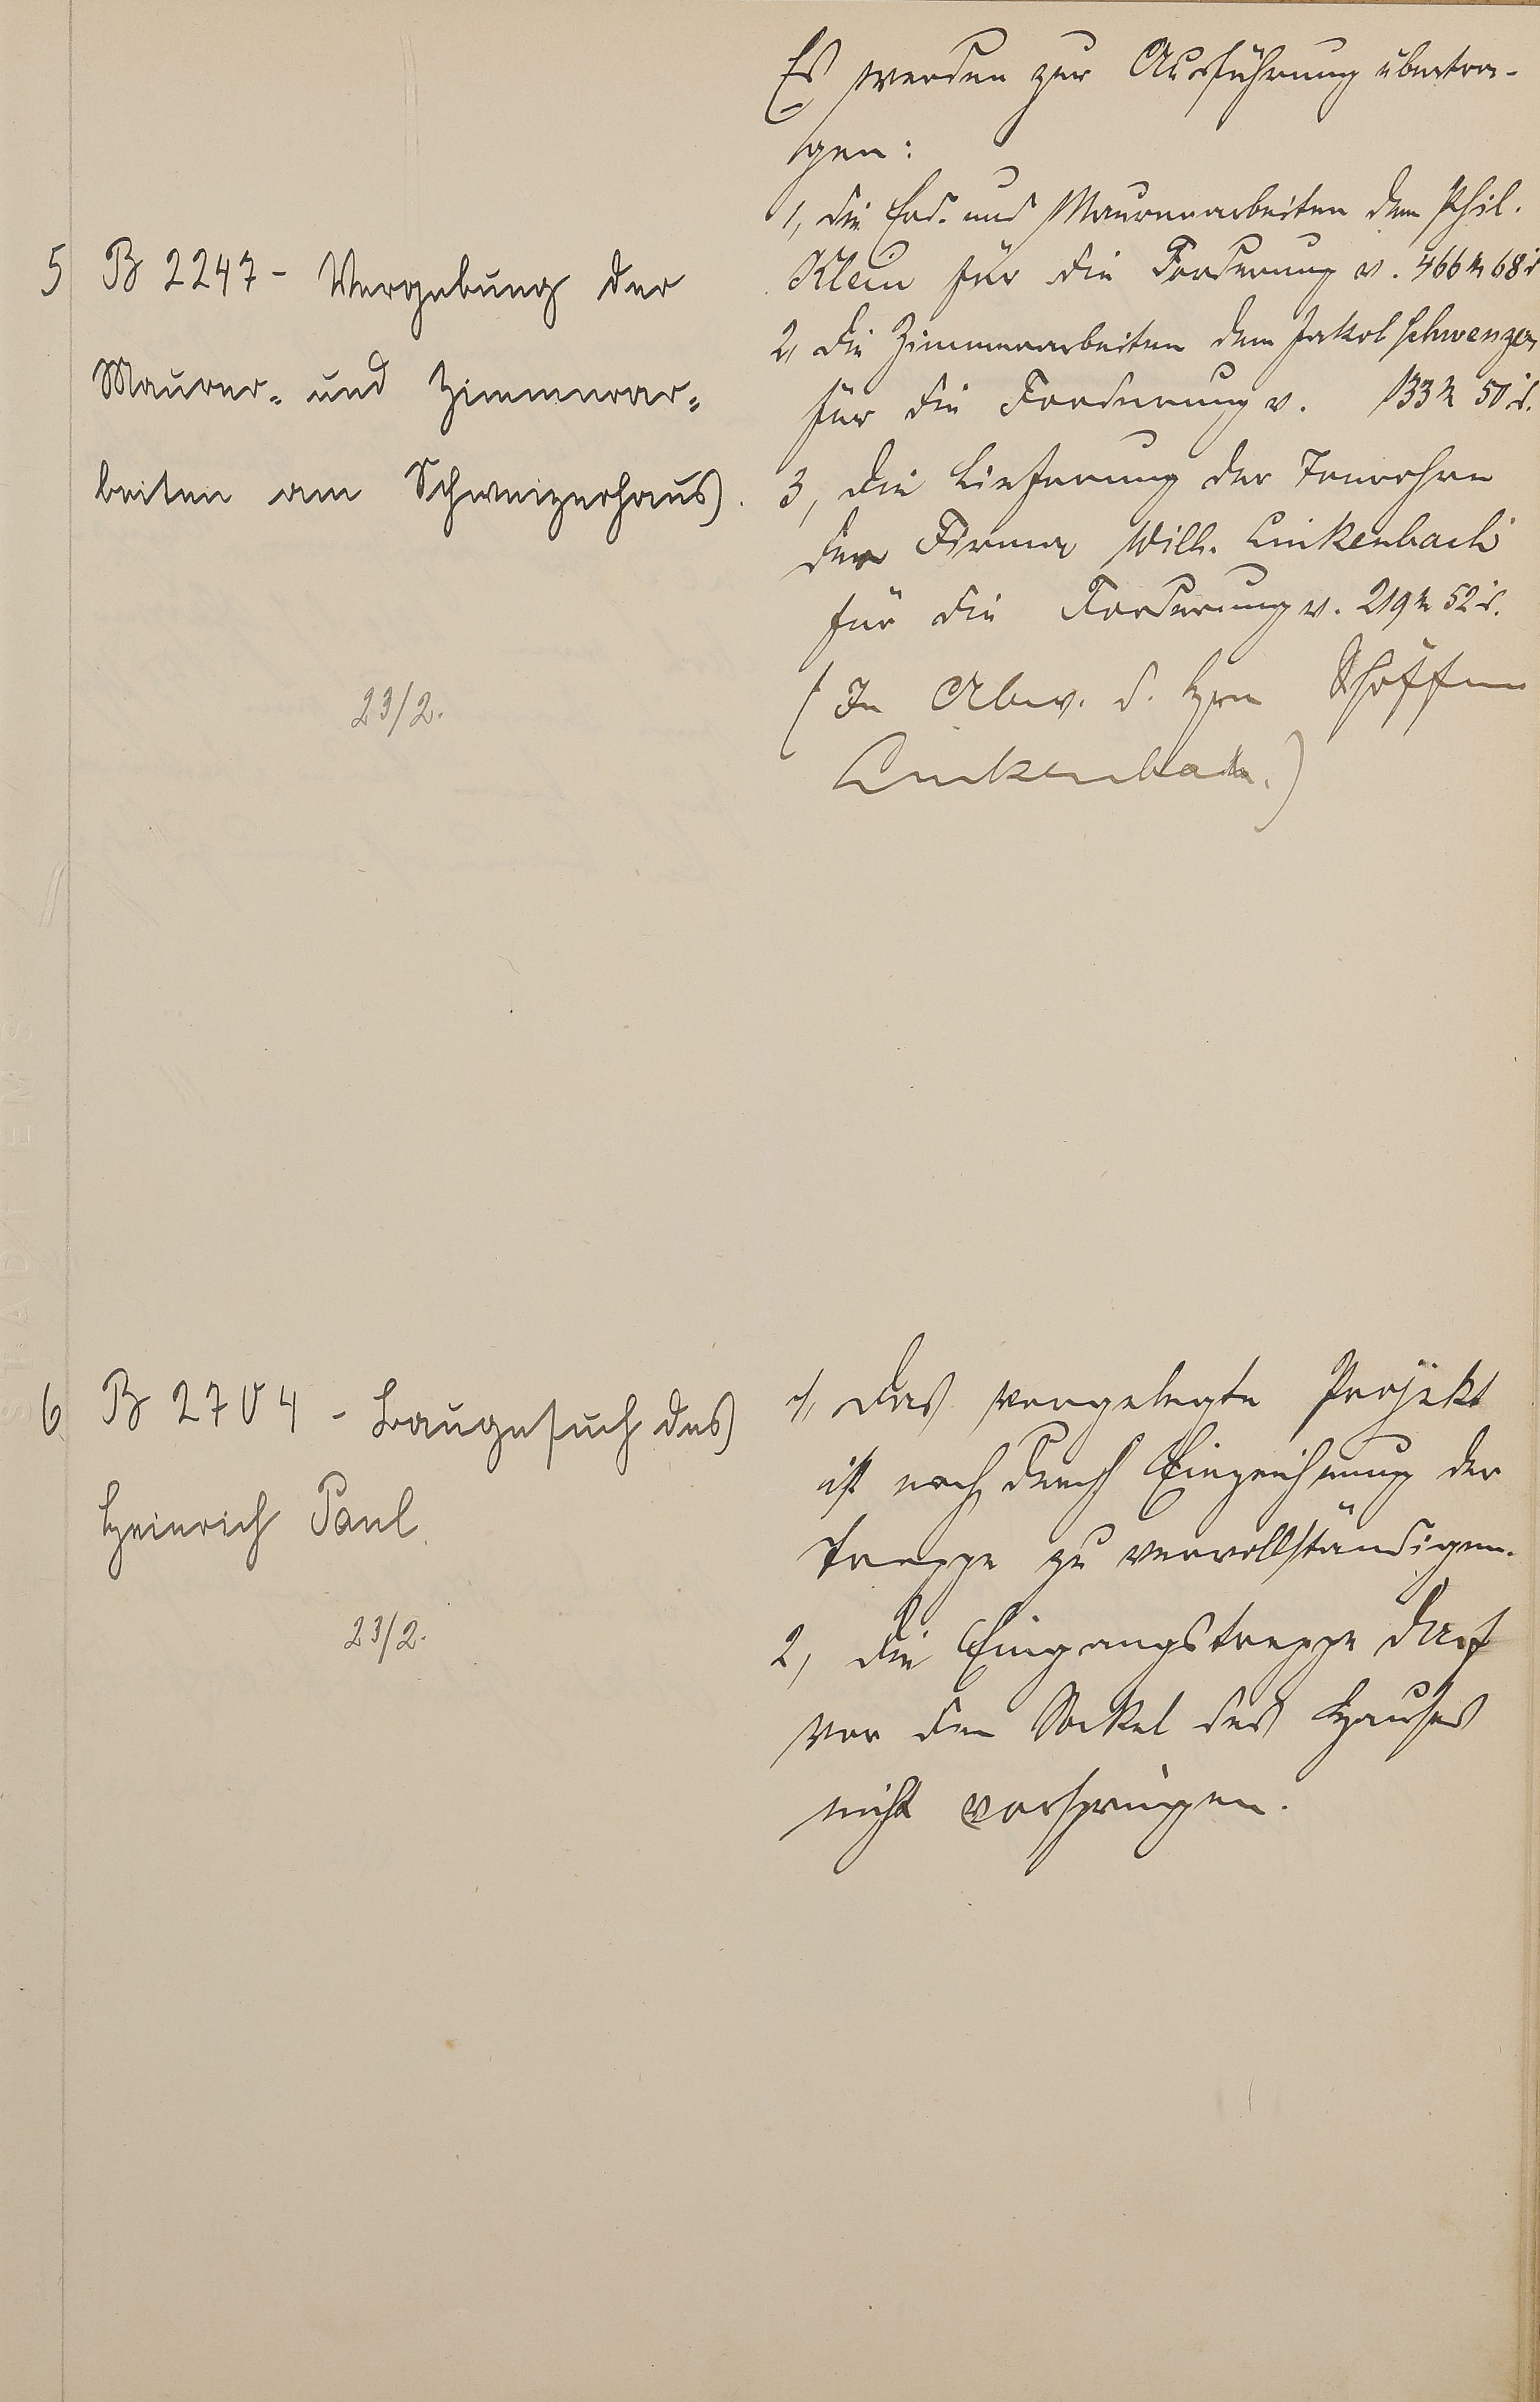 5 B 2247 - Vergebung der
Maurer- und Zimmerar-
beiten am Schweizerhaus.
23/2.
Es werden zur Ausführung übertra-
gen:
1, die Erd- und Maurerarbeiten dem Phil.
Klein für die Forderung v. 466 M 68 d
2, die Zimmerarbeiten dem Jakob Schwenzer
für die Forderung v. 133 M 50 d.
3, die Lieferung der Tonrohre
der Firma Wilh. Linkenbach
für die Forderung v. 219 M 52 d.
(In Abw. d. Hrn Schöffen
Linkenbach.)
6 B 2704 - Baugesuch des
Heinrich Paul.
23/2.
1, das vorgelegte Projekt
ist noch durch Einzeichnung der
Treppe zu vervollständigen.
2, die Eingangstreppe darf
vor den Sockel des Hauses
nicht vorspringen.